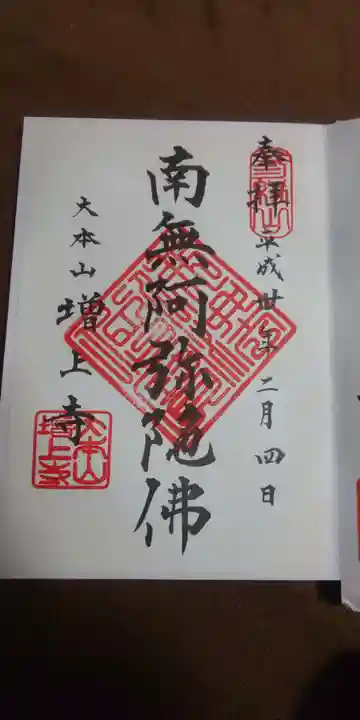 奉拝
平成丗年二月四日
南無阿弥陀佛
大本山増上寺
大本山
増上寺